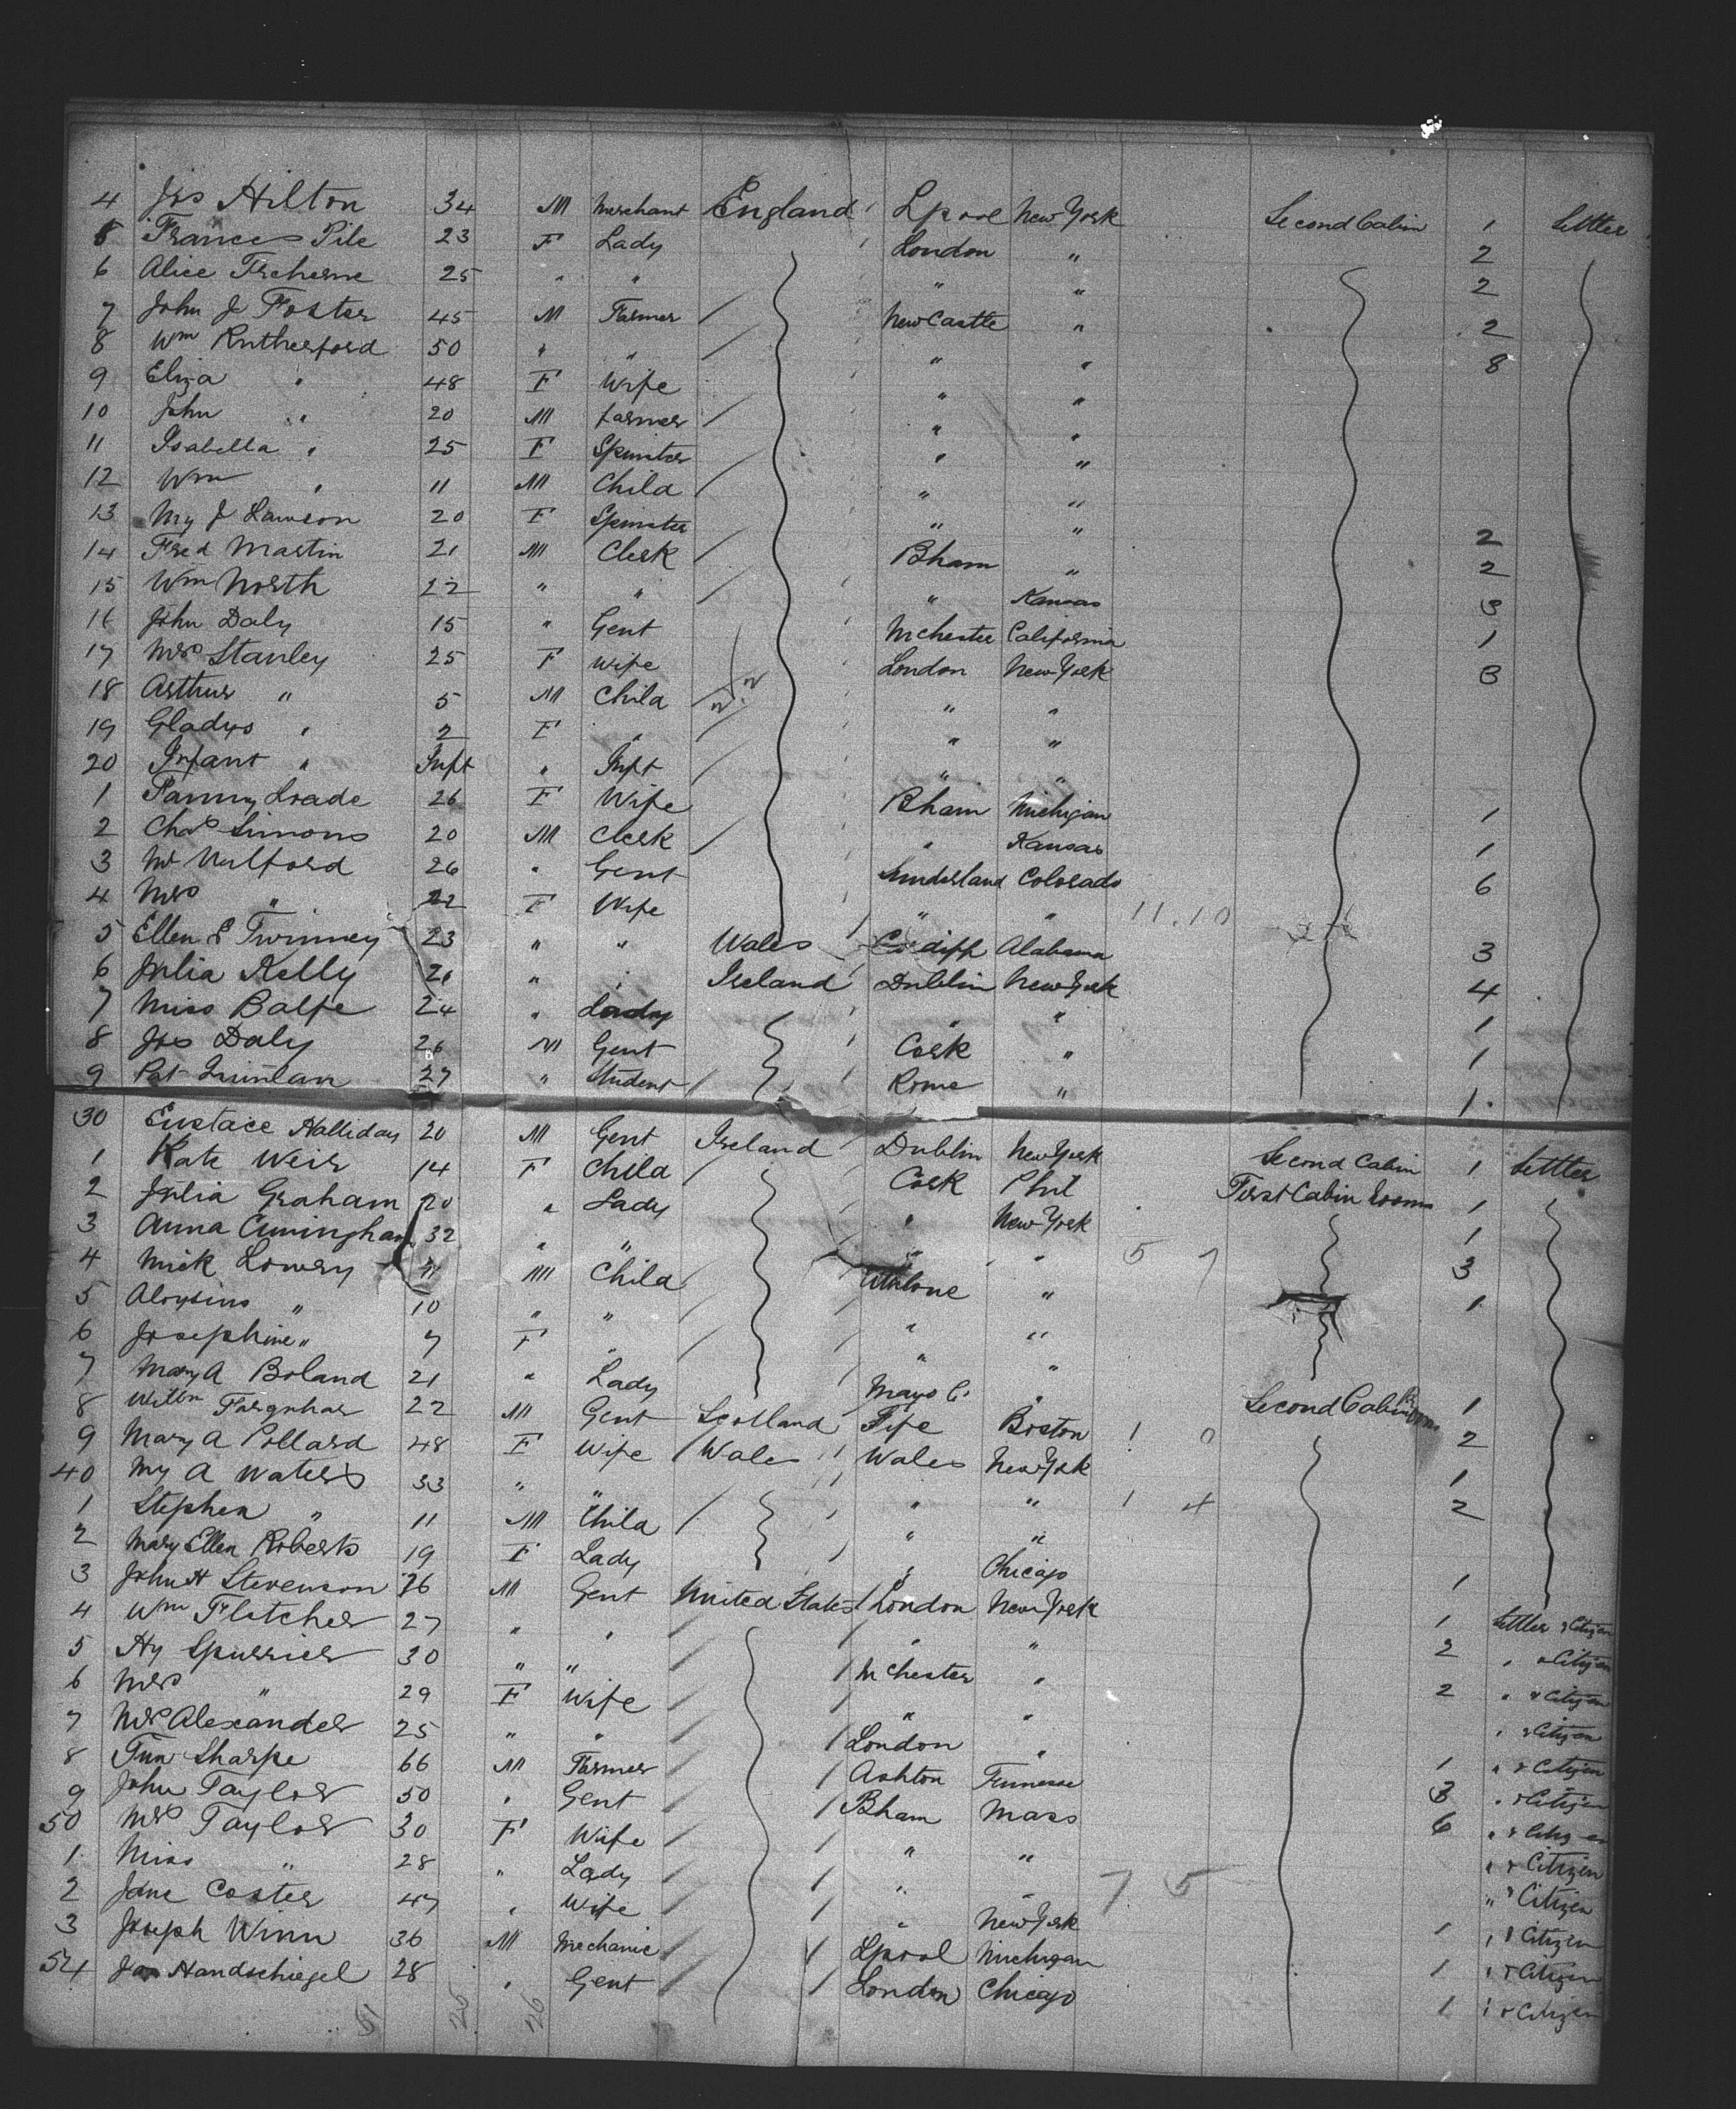 4 Jos Hilton 34 M Merchant England Lpool New York Second Cabin 1 Settler
5 Frances Pile 23 F Lady London " 2
6 Alice Treherne 25 " " " " 2
7 John J Foster 45 M Farmer New Castle " 2
8 Wm Rutherford 50 " " " " 8
9 Eliza " 48 F Wife " "
10 John " 20 M farmer " "
11 Isabella " 25 F Spinster " "
12 Wm " 11 M Child " "
13 My J Lawson 20 F Spinster " " 2
14 Fred Martin 21 M Clerk Bham " 2
15 Wm North 22 " " " Kansas 3
16 John Daly 15 " Gent Mchester California 1
17 Mrs Stanley 25 F wife London New York 3
18 Arthur " 5 M Child " "
19 Gladys " 2 F " " "
20 Infant " Inft " Inft " "
1 Fanny 26 F Wife Bham Michigan 1
2 Chas Simons 20 M Clerk " Kansas 1
3 Mr Mulford 26 " Gent Sunderland Colorado 6
4 Mrs " 22 F Wife " " 11.10
5 Ellen S Twinney 23 " " Wales Cardiff Alabama 3
6 Julia Kelly 26 " " Ireland Dublin New York 4
7 Miss Balfe 24 " Lady " " 1
8 Jos Daly 26 M Gent Cork " 1
9 Pat Quinlan 27 " Student Rome " 1
30 Eustace Halliday 20 M Gent Ireland Dublin New York Second Cabin 1 Settler
1 Kate Weir 14 F Child Cork Phil First Cabin Rooms 1
2 Julia Graham 20 " Lady " New York 1
3 Anna Cuningham 32 " " " " 5 7 3
4 Mick Lowry 11 M Child Athlone " 1
5 Aloysius " 10 " " " "
6 Josephine " 7 F " " "
7 Mary A Boland 21 " Lady Mayo C. " Second Cabin 1
8 Willm Farquhar 22 M Gent Scotland Fife Boston 1 0 2
9 Mary A Pollard 48 F Wife Wales Wales New York 1
40 My A Waters 33 " " " " 1 4 2
1 Stephen " 11 M Child " "
2 Mary Ellen Roberts 19 F Lady " Chicago 1
3 John H Stevenson 26 M Gent United States London New York 1 Settler & Citizen
4 Wm Fletcher 27 " " " " 2 " & Citizen
5 Hy Spurrier 30 " " Mchester " 2 " & Citizen
6 Mrs " 29 F Wife " " " & Citizen
7 Mrs Alexander 25 " " London " 1 " & Citizen
8 Sharpe 66 M Farmer Ashton Tennesse 3 " & Citizen
9 John Taylor 50 " Gent Bham Mass 6 " & Citizen
50 Mrs Taylor 30 F Wife " " " & Citizen
1 Miss " 28 " Lady " " 7 5 " & Citizen
2 Jane Coster 47 " Wife " New York 1 " & Citizen
3 Joseph Winn 36 M Mechanic Lpool Michigan 1 " & Citizen
54 Jas Handschiegel 28 " Gent London Chicago 1 " & Citizen